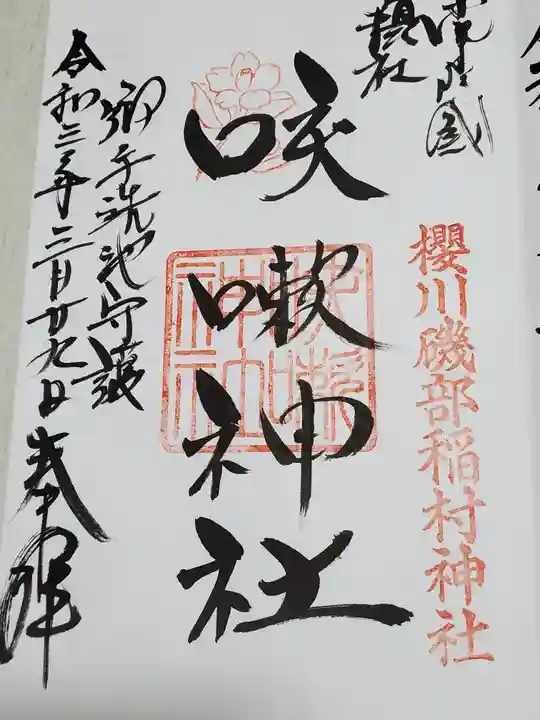 常陸國
摂社
櫻川磯部稲村神社
咳嗽神社
御手洗池守護
令和三年三月廿九日
奉拝